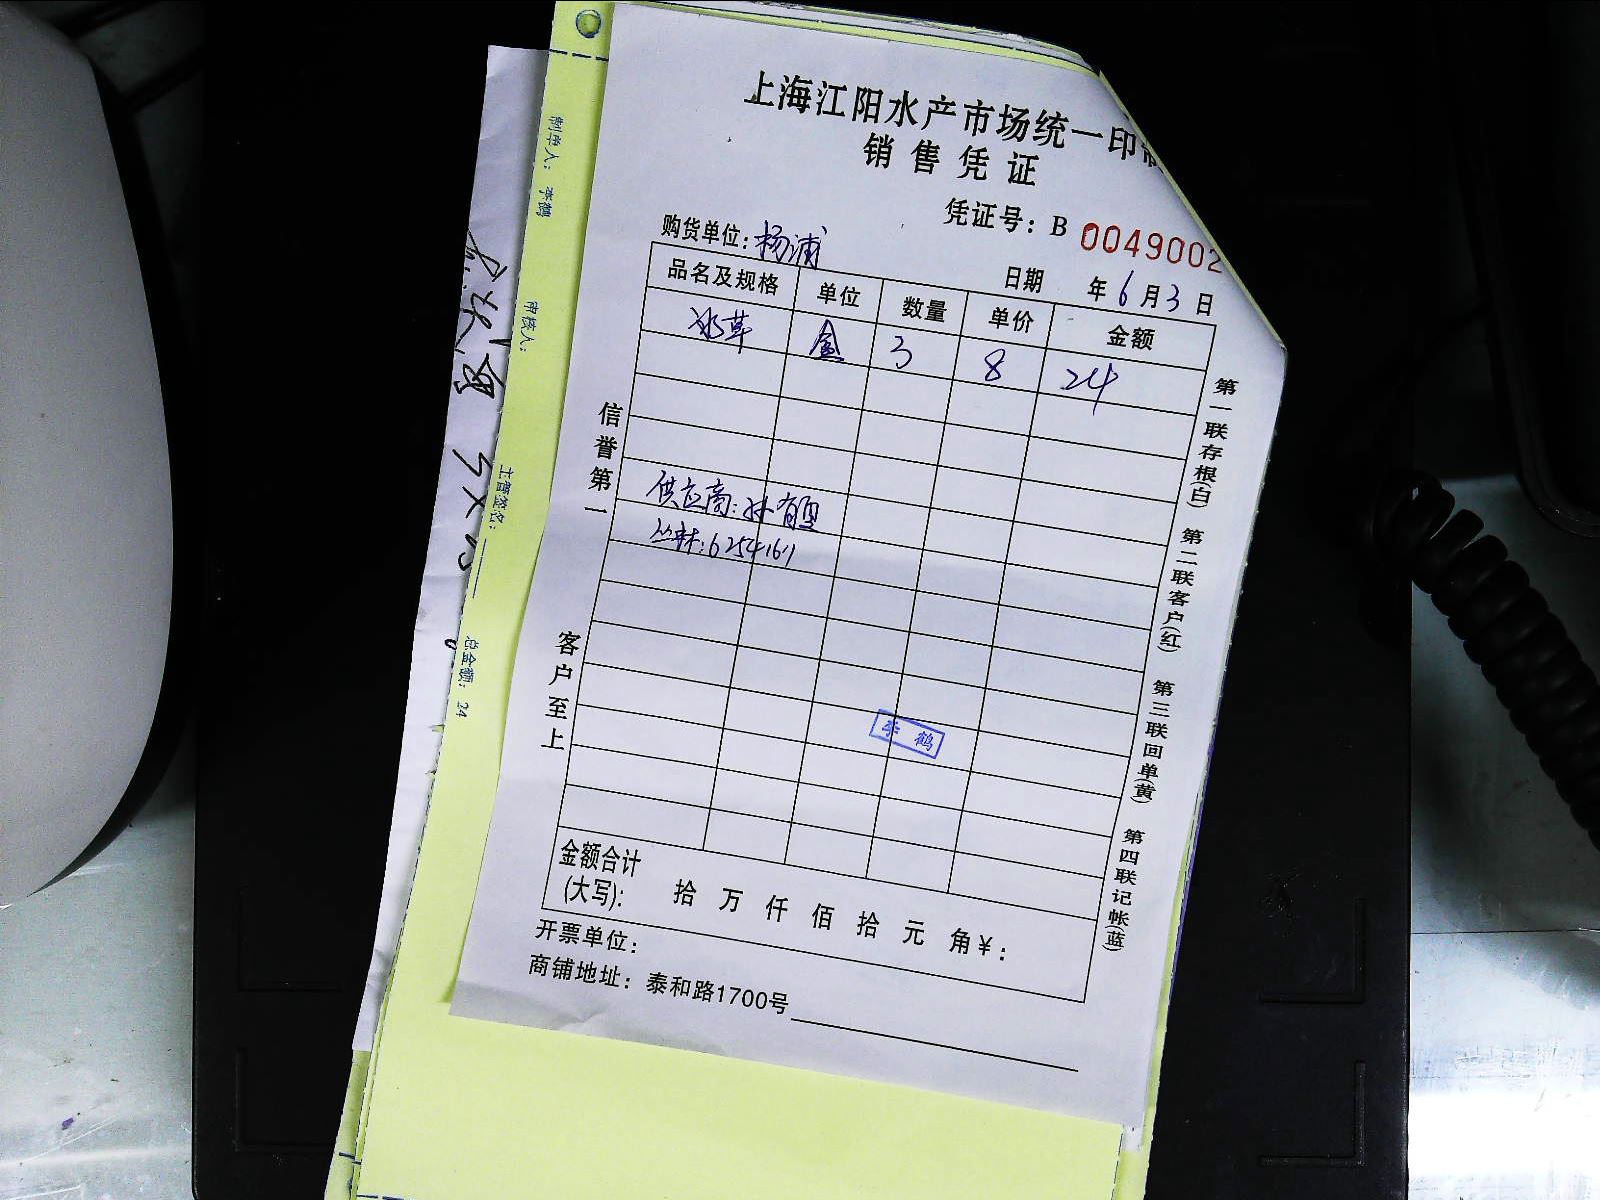 上海江阳水产市场统一印
销售凭证
凭证号：B 0049002
购货单位：杨浦
日期 年6月3日
品名及规格 单位 数量 单价 金额
冰草 盒 3 8 24
供应商：孙有
6254161
李鹤
信誉第一
客户至上
第一联存根(白) 第二联客户(红) 第三联回单(黄) 第四联记帐(蓝)
金额合计
(大写)： 拾 万 仟 佰 拾 元 角 ￥：
开票单位：
商铺地址：泰和路1700号
制单人：李鹤
审核人：
主管签名：
总金额：24